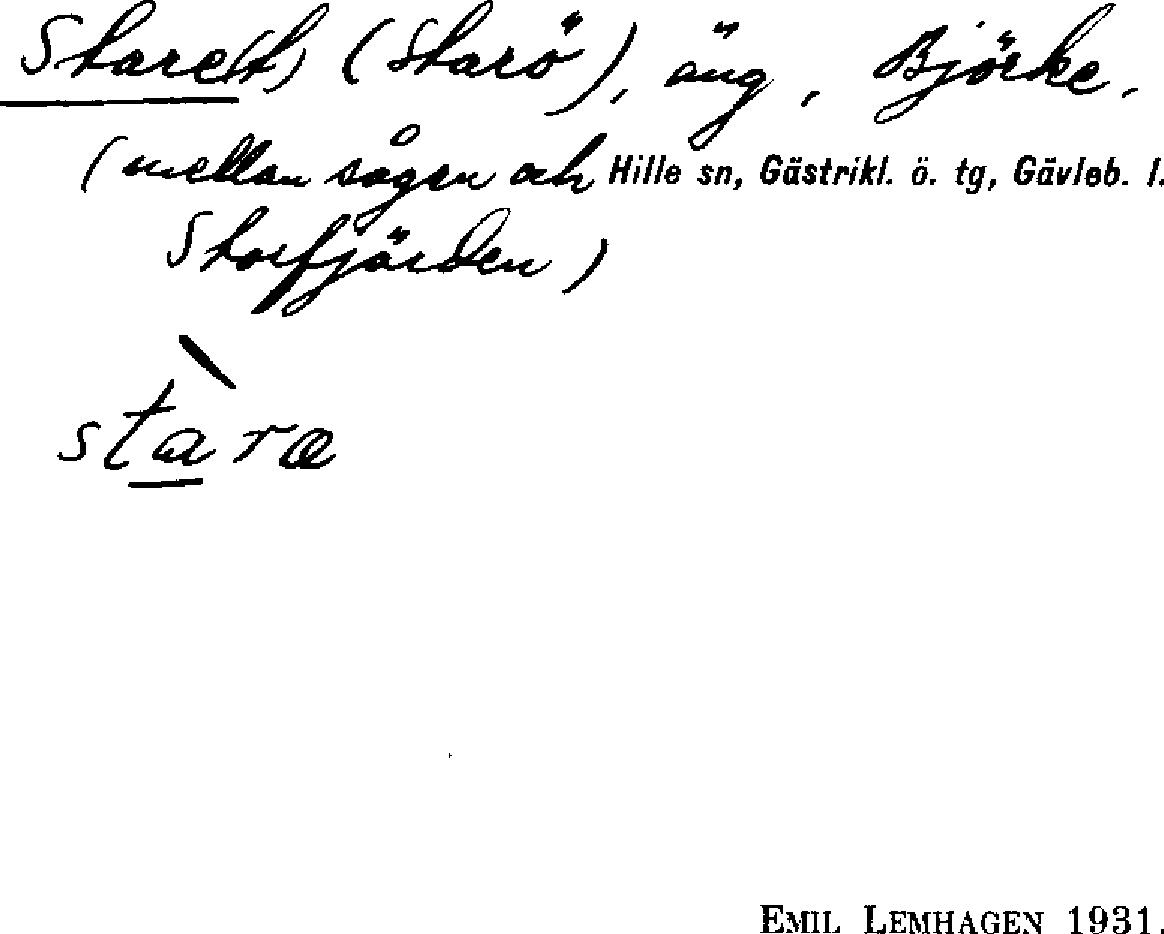 Stare(t) (Starö), äng, Björke.
(mellan sågen och Hille sn, Gästrikl. ö. tg, Gävleb. l.
Storfjärden)
stara
EMIL LEMHAGEN 1931.